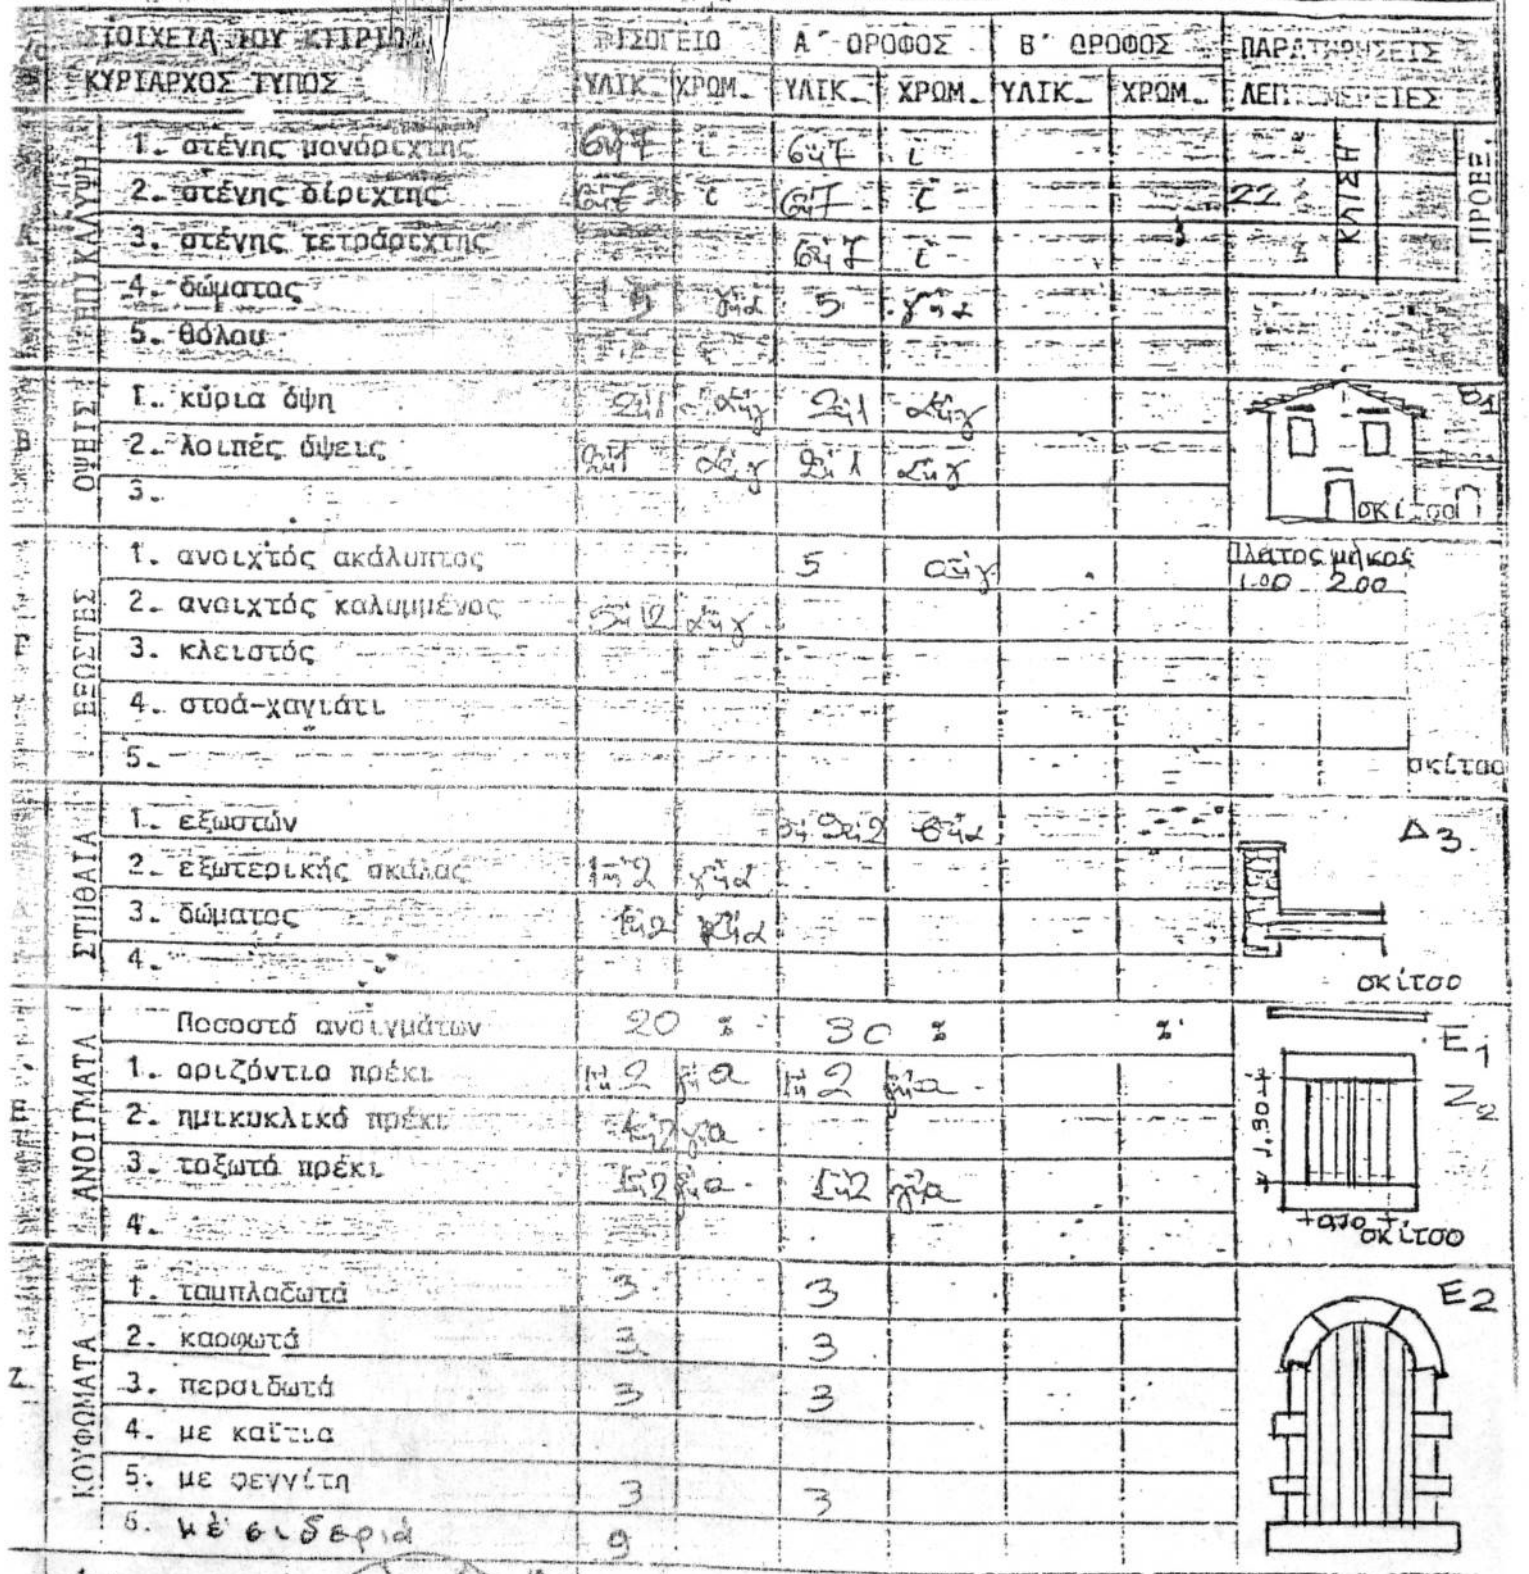 ΣΤΟΙΧΕΙΑ ΤΟΥ ΚΤΙΡΙΟΥ ΙΣΟΓΕΙΟ Α΄ ΟΡΟΦΟΣ Β΄ ΟΡΟΦΟΣ ΠΑΡΑΤΗΡΗΣΕΙΣ
ΚΥΡΙΑΡΧΟΣ ΤΥΠΟΣ ΥΛΙΚ. ΧΡΩΜ. ΥΛΙΚ. ΧΡΩΜ. ΥΛΙΚ. ΧΡΩΜ. ΛΕΠΤΟΜΕΡΕΙΕΣ
ΕΠΙΚΑΛΥΨΗ
1. στέγης μονόριχτης 6ή7 ι 6ή7 ι ΚΛΙΣΗ ΠΡΟΕΞ.
2. στέγης δίριχτης 6ή7 ι 6ή7 ι 22
3. στέγης τετράριχτης 6ή7 ι
4. δώματος 5 γήα 5 γήα
5. θόλου
Β ΟΨΕΙΣ
1. κύρια όψη 2ή1 αήγ 2ή1 αήγ Β1
2. λοιπές όψεις 2ή1 αήγ 2ή1 αήγ
3. σκίτσο
Γ ΕΞΩΣΤΕΣ
1. ανοιχτός ακάλυπτος 5 αήγ Πλάτος μήκος
1.00 2.00
2. ανοιχτός καλυμμένος 5ή2 αήγ
3. κλειστός
4. στοά-χαγιάτι
5. σκίτσο
ΣΤΗΘΑΙΑ
1. εξωστών Δ3
2. εξωτερικής σκάλας 1ή2 γήα
3. δώματος 1ή2 γήα
4. σκίτσο
Ε ΑΝΟΙΓΜΑΤΑ
Ποσοστό ανοιγμάτων 20 % 30 % % Ε1
1. οριζόντιο πρέκι 1ή2 γήα 1ή2 γήα Ζ2
2. ημικυκλικό πρέκι 1ή2 γήα 1.30
3. τοξωτό πρέκι 1ή2 γήα 1ή2 γήα
4. 0,70 σκίτσο
Ζ ΚΟΥΦΩΜΑΤΑ
1. ταμπλαδωτά 3 3 Ε2
2. καρφωτά 3 3
3. περσιδωτά 3 3
4. με καΐτια
5. με φεγγίτη 3 3
6. με σιδεριά 9